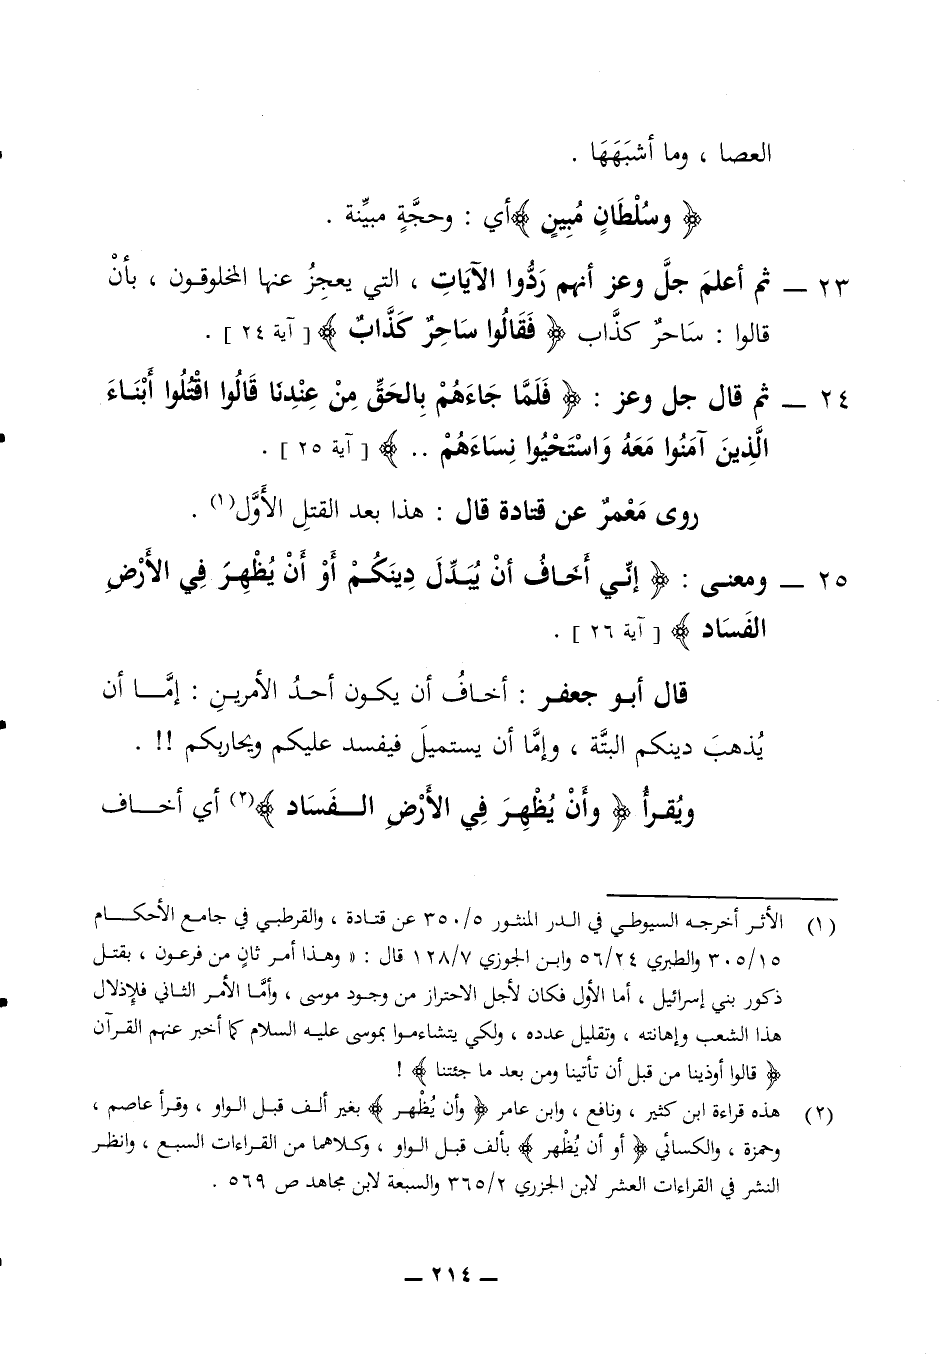 العصا ، وما أشبَهَهَا .
﴿ وسُلْطَانٍ مُبِينٍ ﴾أي : وحجَّةٍ مبيِّنة .
٢٣ ــ ثم أعلمَ جلَّ وعز أنهم رَدُّوا الآيَاتِ ، التي يعجِزُ عنها المخلوقون ، بأنْ
قالوا : سَاحرٌ كذَّاب ﴿ فَقَالُوا سَاحِرٌ كَذَّابٌ ﴾ [ آية ٢٤ ] .
٢٤ ــ ثم قال جل وعز : ﴿ فَلَمَّا جَاءَهُمْ بِالحَقِّ مِنْ عِنْدِنَا قَالُوا اقْتُلُوا أَبْنَاءَ
الَّذِينَ آمَنُوا مَعَهُ وَاسْتَحْيُوا نِسَاءَهُمْ .. ﴾ [ آية ٢٥ ] .
روى مَعْمرٌ عن قتادة قال : هذا بعد القتلِ الأَوَّل(١) .
٢٥ ــ ومعنى : ﴿ إنِّي أَخَافُ أنْ يُبَدِّلَ دِينَكُمْ أَوْ أَنْ يُظْهِرَ فِي الأَرْضِ
الفَسَاد ﴾ [ آية ٢٦ ] .
قال أبو جعفر : أخافُ أن يكون أحدُ الأمرينِ : إمَّا أن
يُذهبَ دينكم البتَّة ، وإمَّا أن يستميلَ فيفسد عليكم ويحاربكم !! .
ويُقرأُ ﴿ وأَنْ يُظْهِرَ فِي الأَرْضِ الفَسَاد ﴾(٢) أي أخاف
(١) الأثر أخرجه السيوطي في الدر المنثور ٣٥٠/٥ عن قتادة ، والقرطبي في جامع الأحكام
٣٠٥/١٥ والطبري ٥٦/٢٤ وابن الجوزي ١٢٨/٧ قال : « وهذا أمر ثانٍ من فرعون ، بقتل
ذكور بني إسرائيل ، أما الأول فكان لأجل الاحتراز من وجود موسى ، وأمَّا الأمر الثاني فلإذلال
هذا الشعب وإهانته ، وتقليل عدده ، ولكي يتشاءموا بموسى عليه السلام كما أخبر عنهم القرآن
﴿ قالوا أوذينا من قبل أن تأتينا ومن بعد ما جئتنا ﴾ !
(٢) هذه قراءة ابن كثير ، ونافع ، وابن عامر ﴿ وأن يُظْهر ﴾ بغير ألف قبل الواو ، وقرأ عاصم ،
وحمزة ، والكسائي ﴿ أو أن يُظْهر ﴾ بألف قبل الواو ، وكلاهما من القراءات السبع ، وانظر
النشر في القراءات العشر لابن الجزري ٣٦٥/٢ والسبعة لابن مجاهد ص ٥٦٩ .
ــ ٢١٤ ــ